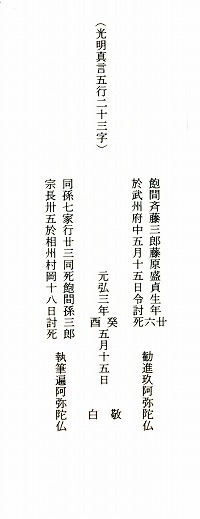 （光明真言五行二十三字）
飽間斉藤三郎藤原盛貞生年廿六
於武州府中五月十五日令討死
勧進玖阿弥陀仏
元弘三年癸酉五月十五日敬白
同孫七家行廿三同死飽間孫三郎
宗長卅五於相州村岡十八日討死
執筆遍阿弥陀仏